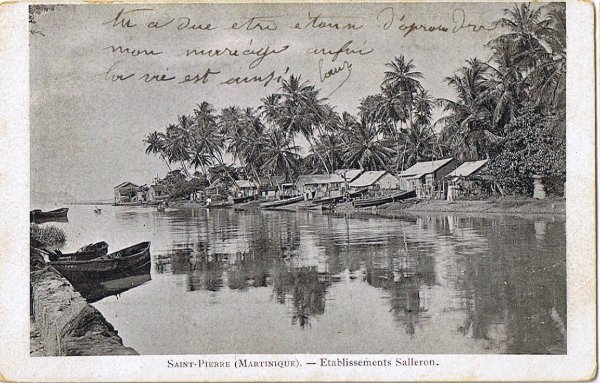 tu a due etre etonn d'aprendre
mon mariage enfin
la vie est ainsi
SAINT-PIERRE (MARTINIQUE). — Etablissements Salleron.